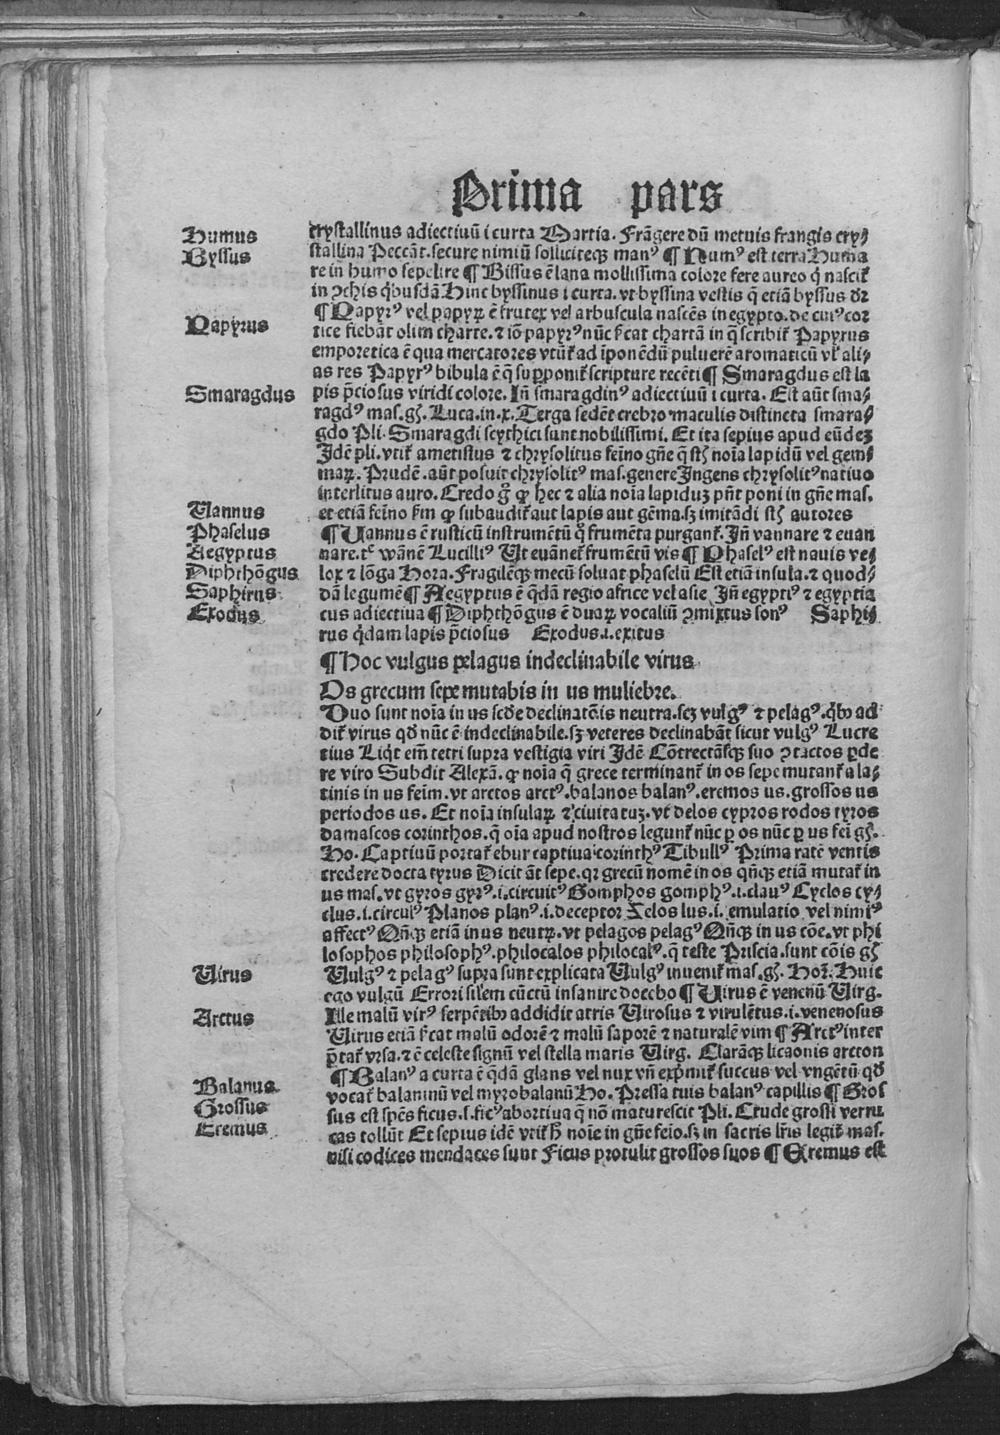 Prima pars
Humus
Byssus
Papyrus
Smaragdus
Vannus
Phaselus
Aegyptus
Diphthõgus
Saphirus
Exodus
Virus
Arctus
Balanus
Grossus
Eremus
crystallinus adiectiuũ i curta Martia. Frãgere dũ metuis frangis cry⸗
stallina Peccãt. secure nimiũ solliciteqꝫ manꝰ ¶ Humꝰ est terra Huma
re in humo sepelire ¶ Bissus ẽ lana mollissima colore fere aureo q̃ nascit᷑
in ↄchis q̇busdã Hinc byssinus i curta. vt byssina vestis q̃ etiã byssus dr̃
¶ Papyrꝰ vel papyrꝫ ẽ frutex vel arbuscula nascẽs in egypto. de cuiꝰ cor
tice fiebãt olim charte. ⁊ iõ papyrꝰ nũc ßcat chartã in q̃ scribit᷑ Papyrus
emporetica ẽ qua mercatores vtũt᷑ ad ĩponẽdũ puluerẽ aromaticũ vl᷑ ali⸗
as res Papyrꝰ bibula ẽ q̃ supponit᷑ scripture recẽti ¶ Smaragdus est la
pis p̃ciosus viridi colore. Iñ smaragdinꝰ adiectiuũ i curta. Est aũt sma⸗
ragdꝰ mas. gñ. Luca. in. x. Terga sedẽt crebro maculis distincta smara⸗
gdo Pli. Smaragdi scythici sunt nobilissimi. Et ita sepius apud eũdeꝫ
Idẽ pli. vtit᷑ ametistus ⁊ chrysolitus feĩno gñe q̃ st̃ noĩa lapidũ vel gem⸗
marꝫ. Prudẽ. aũt posuit chrysolitꝰ mas. genere Ingens chrysolitꝰ natiuo
interlitus auro. Credo g̃ ꝙ hec ⁊ alia noĩa lapiduꝫ pñt poni in gñe mas.
et etiã feĩno ßm ꝙ subaudit᷑ aut lapis aut gẽma. sꝫ imitãdi st̃ autores
¶ Vannus ẽ rusticũ instrumẽtũ q̊ frumẽta purgant᷑. Iñ vannare ⁊ euan
nare. tc̃ wãnẽ Lucilliꝰ Vt euãnet᷑ frumẽtũ vis ¶ Phaselꝰ est nauis ve⸗
lox ⁊ lõga Hora. Fragilẽqꝫ mecũ soluat phaselũ Est etiã insula. ⁊ quod⸗
dã legumẽ ¶ Aegyptus ẽ q̃dã regio africe vel asie Iñ egyptiꝰ ⁊ egyptia
cus adiectiua ¶ Diphthõgus ẽ duarꝫ vocaliũ ↄmixtus sonꝰ Saphi⸗
rus q̇dam lapis p̃ciosus Exodus. i. exitus
¶ Hoc vulgus pelagus indeclinabile virus
Os grecum sepe mutabis in us muliebre.
Duo sunt noĩa in us scd̃e declinatẽis neutra. scꝫ vulgꝰ ⁊ pelagꝰ. q̇bꝰ ad
dit᷑ virus qd̃ nũc ẽ indeclinabile. sꝫ veteres declinabãt sicut vulgꝰ Lucre
tius Liq̇t em̃ tetri supra vestigia viri Idẽ Cõtrectãsqꝫ suo ↄtactos ꝑde
re viro Subdit Alexã. ꝙ noĩa q̃ grece terminant᷑ in os sepe mutant᷑ a la⸗
tinis in us feĩm. vt arctos arctꝰ. balanos balanꝰ. eremos us. grossos us
periodos us. Et noĩa insularꝫ ⁊ ciuitatuꝫ. vt delos cypros rodos tyros
damascos corinthos. q̃ oĩa apud nostros legunt᷑ nũc ꝑ os nũc ꝑ us feĩ gñ.
Ho. Captiuũ portat᷑ ebur captiua corinthꝰ Tibullꝰ Prima ratẽ ventis
credere docta tyrus Dicit ãt sepe. qꝛ grecũ nomẽ in os qñqꝫ etiã mutat᷑ in
us mas. vt gyros gyrꝰ. i. circuitꝰ Gomphos gomphꝰ. i. clauꝰ Cyclos cy⸗
clus. i. circulꝰ Planos planꝰ. i. deceptor Zelos lus. i. emulatio vel nimiꝰ
affectꝰ Qñqꝫ etiã in us neutrꝫ. vt pelagos pelagꝰ Qñqꝫ in us cõe. vt phi
losophos philosophꝰ. philocalos philocalꝰ. q̃ teste Priscia. sunt cõis gñ
Vulgꝰ ⁊ pelagꝰ supra sunt explicata Vulgꝰ inuenit᷑ mas. gñ. Hor̃. Huic
ego vulgũ Errori silem cũctũ insanire docebo ¶ Virus ẽ venenũ Virg.
Ille malũ virꝰ serpẽtibꝰ addidit atris Virosus ⁊ virulẽtus. i. venenosus
Virus etiã ßcat malũ odorẽ ⁊ malũ saporẽ ⁊ naturalẽ vim ¶ Arctꝰ inter
p̃tat᷑ vrsa. ⁊ ẽ celeste signũ vel stella maris Virg. Clarãqꝫ licaonis arcton
¶ Balanꝰ a curta ẽ q̃dã glans vel nux vñ exp̃mit᷑ succus vel vngẽtũ qd̃
vocat᷑ balaninũ vel myrobalanũ Ho. Pressa tuis balanꝰ capillis ¶ Gros
sus est spẽs ficus. s. ficꝰ abortiua q̃ nõ maturescit Pli. Crude grossi verru
cas tollũt Et sepius idẽ vtit᷑ h̃ noĩe in gñe feĩo. sꝫ in sacris lr̃is legit᷑ mas.
nisi codices mendaces sunt Ficus protulit grossos suos ¶ Eremus est